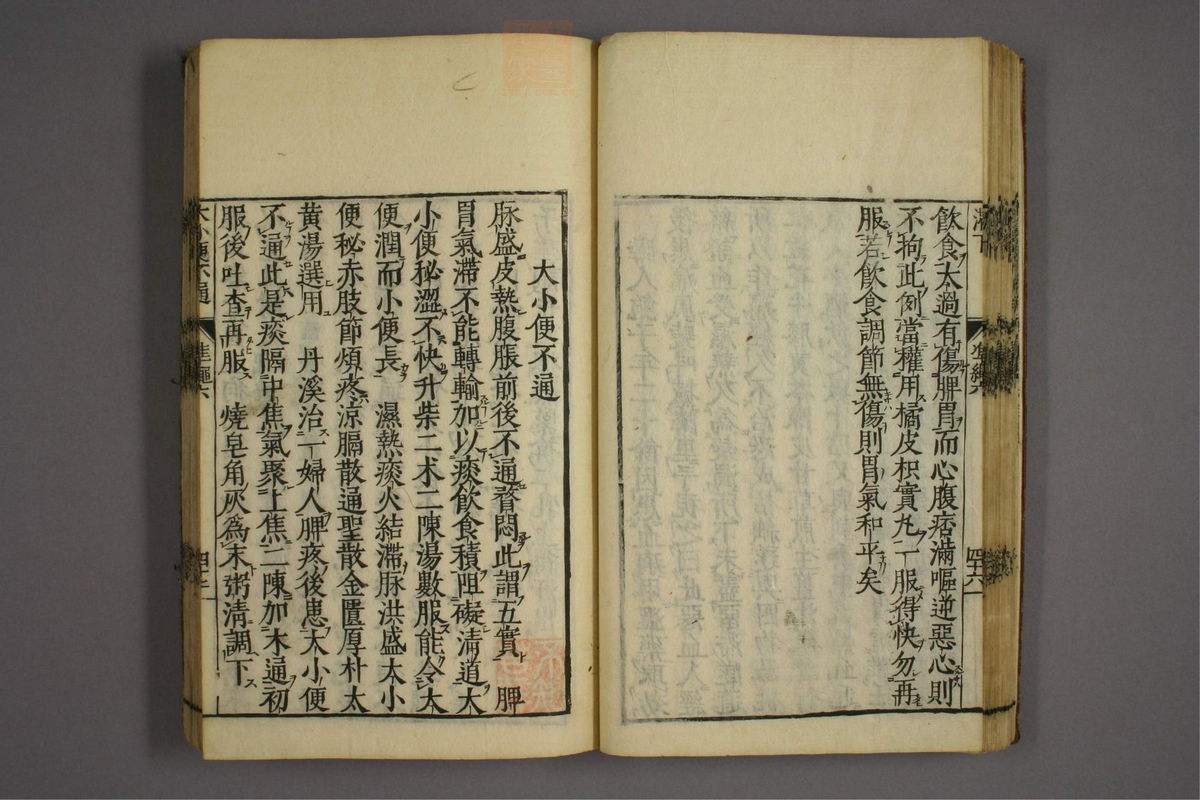 飲食太過有傷脾胃而心腹痞滿嘔逆惡心則
不拘此例當權用橘皮枳實丸一服得快勿再
服若飲食調節無傷則胃氣和平矣
大小便不通
脉盛皮熱腹脹前後不通瞀悶此謂五實 脾
胃氣滯不能轉輸加以痰飲食積阻礙清道大
小便秘澀不快升柴二术二陳湯數服能令大
便潤而小便長 濕熱痰火結滯脉洪盛大小
便秘赤肢節煩疼凉膈散通聖散金匱厚朴大
黃湯選用 丹溪治一婦人脾疼後患大小便
不通此是痰隔中焦氣聚上焦二陳加木通初
服後吐查再服 燒皂角灰為末粥清調下
大小便不通 準繩六